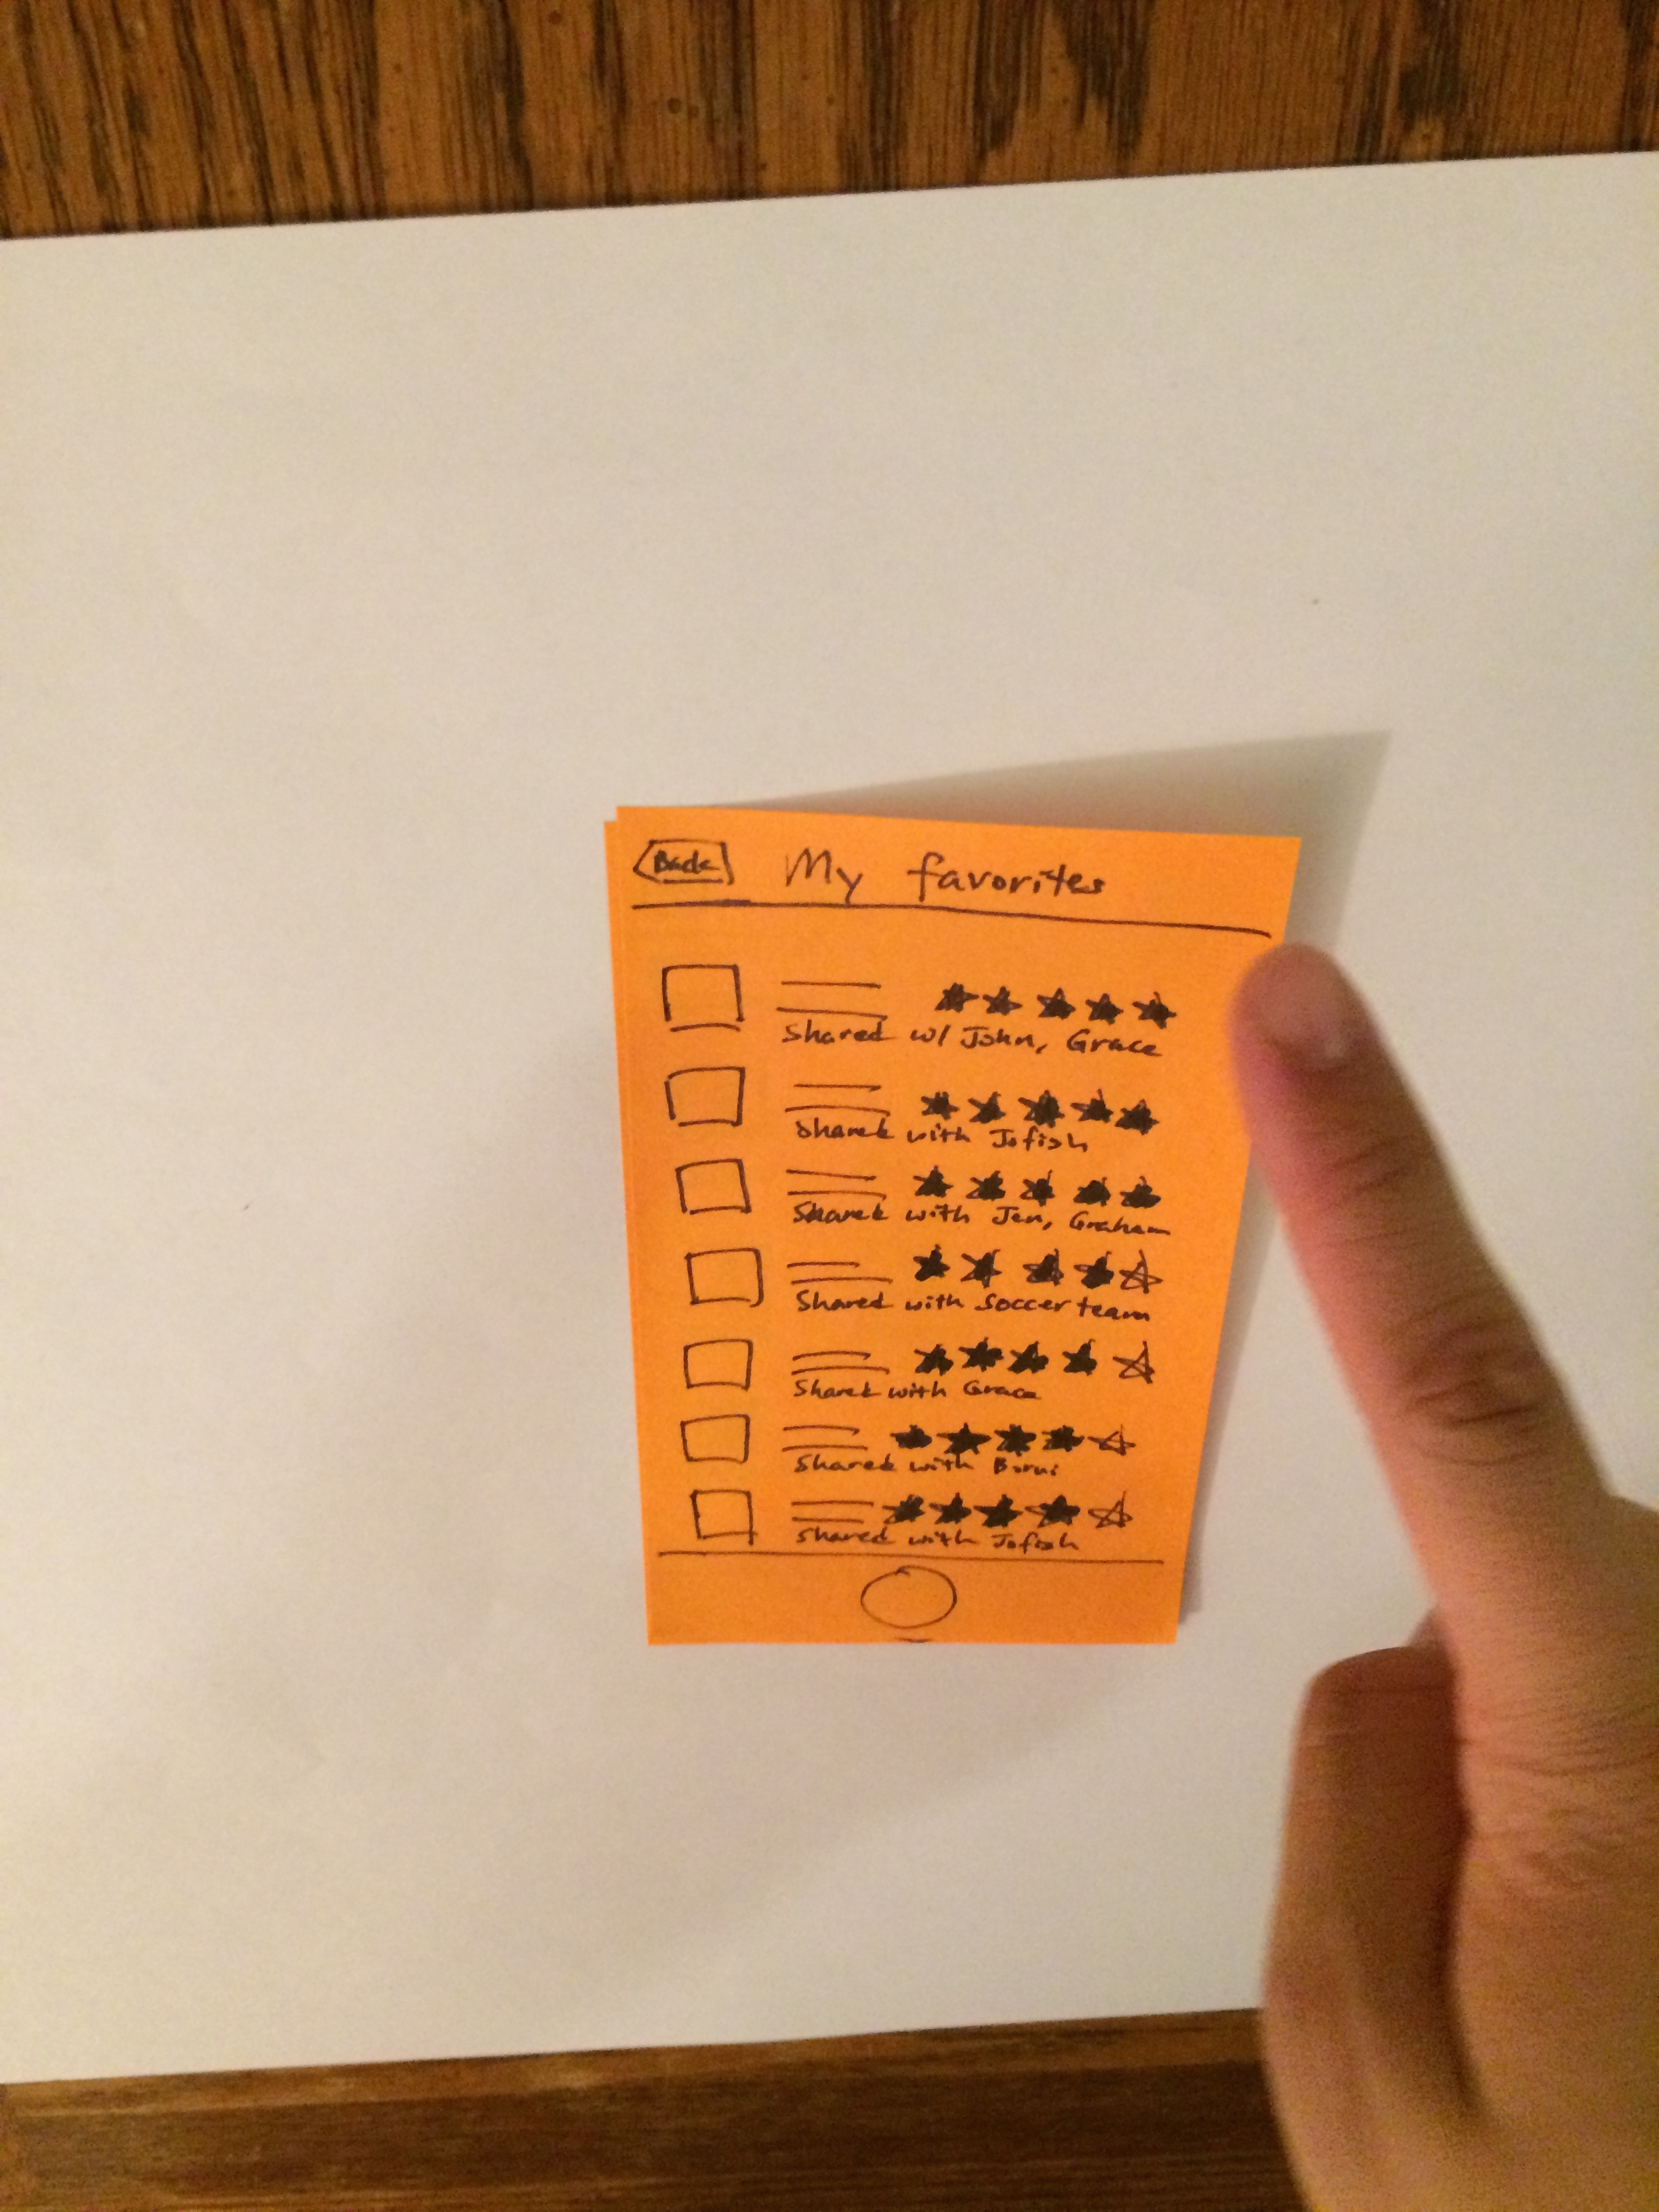 Back My favorites
Shared w/ John, Grace
Shared with Jofish
Shared with Jen, Graham
Shared with Soccer team
Shared with Grace
Shared with
Shared with Jofish